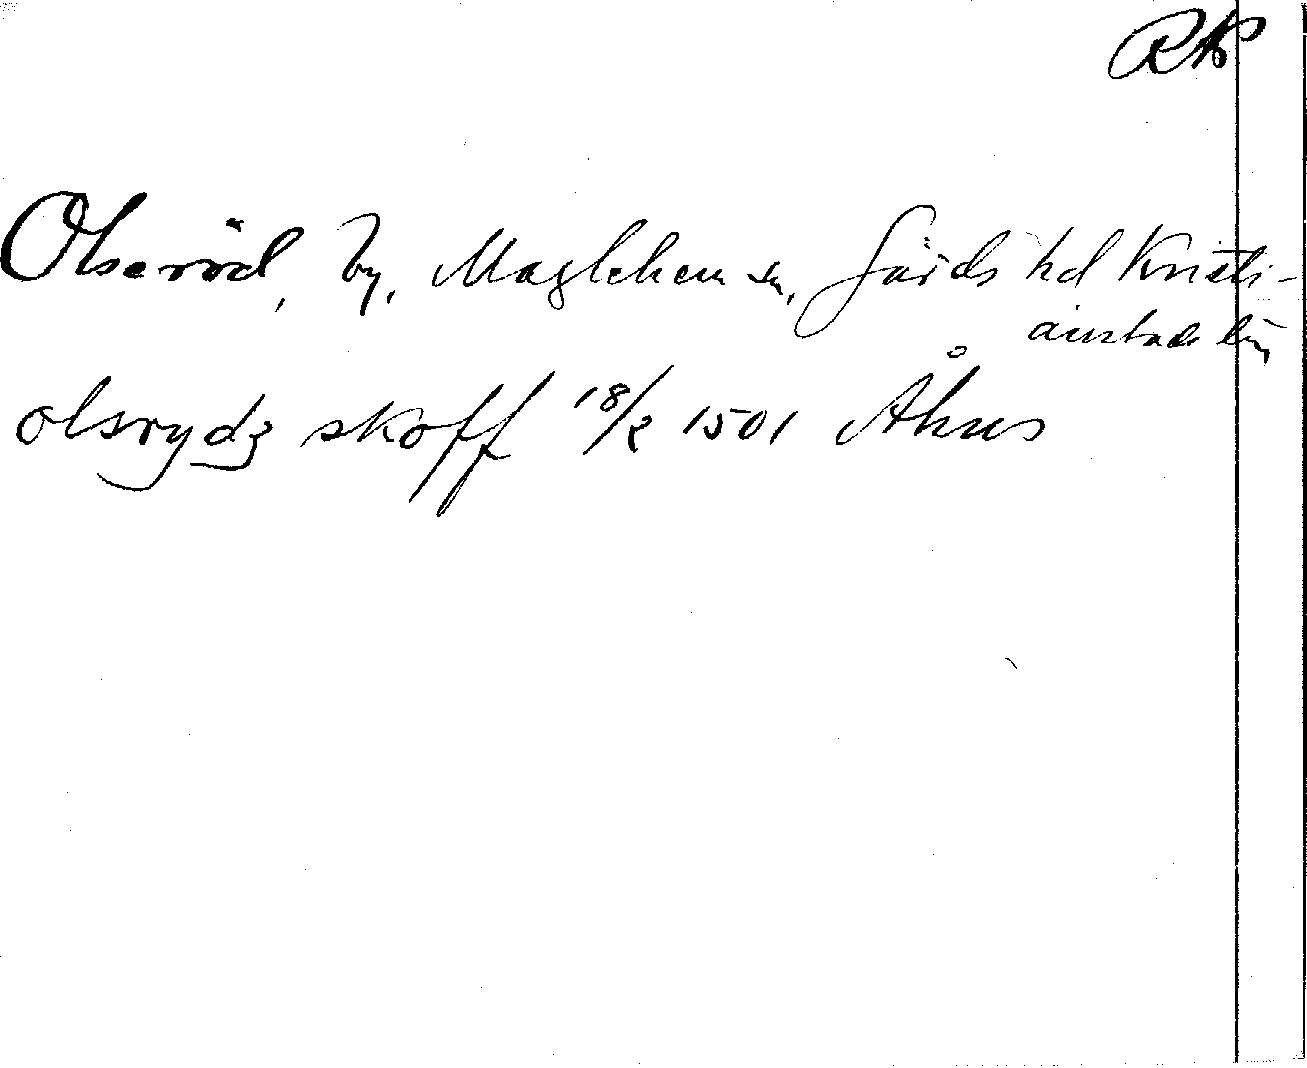 RAP
Olseröd, by, Maglehem sn, Gärds hd Kristi-
anstads län
olsrydz skoff 18/2 1501 Åhus